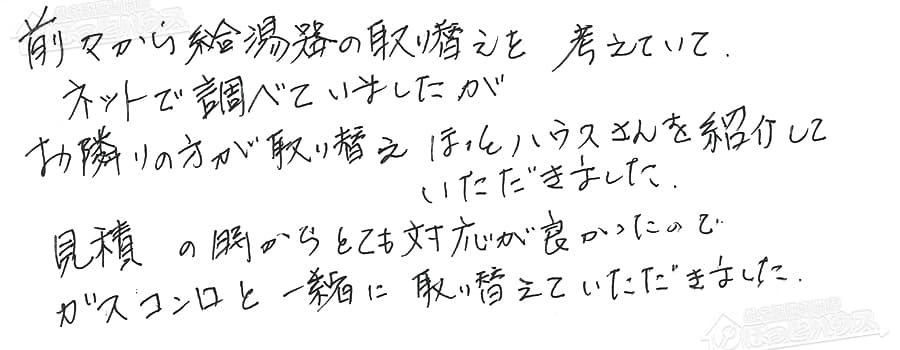 前々から給湯器の取り替えを 考えていて.
ネットで調べていましたが
お隣りの方が取り替え ほっとハウスさんを紹介して
いただきました.
見積 の時からとても対応が良かったので
ガスコンロと一緒に 取り替えていただきました.
ほっとハウス